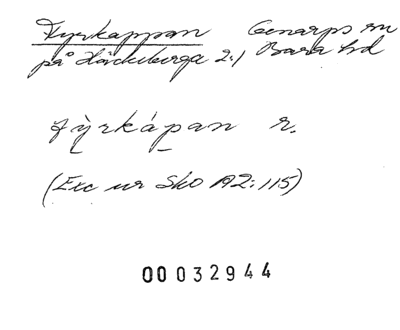 Fyrkappan Genarps sn
på Häckeberga 2:1 Bara hd
fỳrkápan r.
(Exc ur Sko A2:115)
00032944